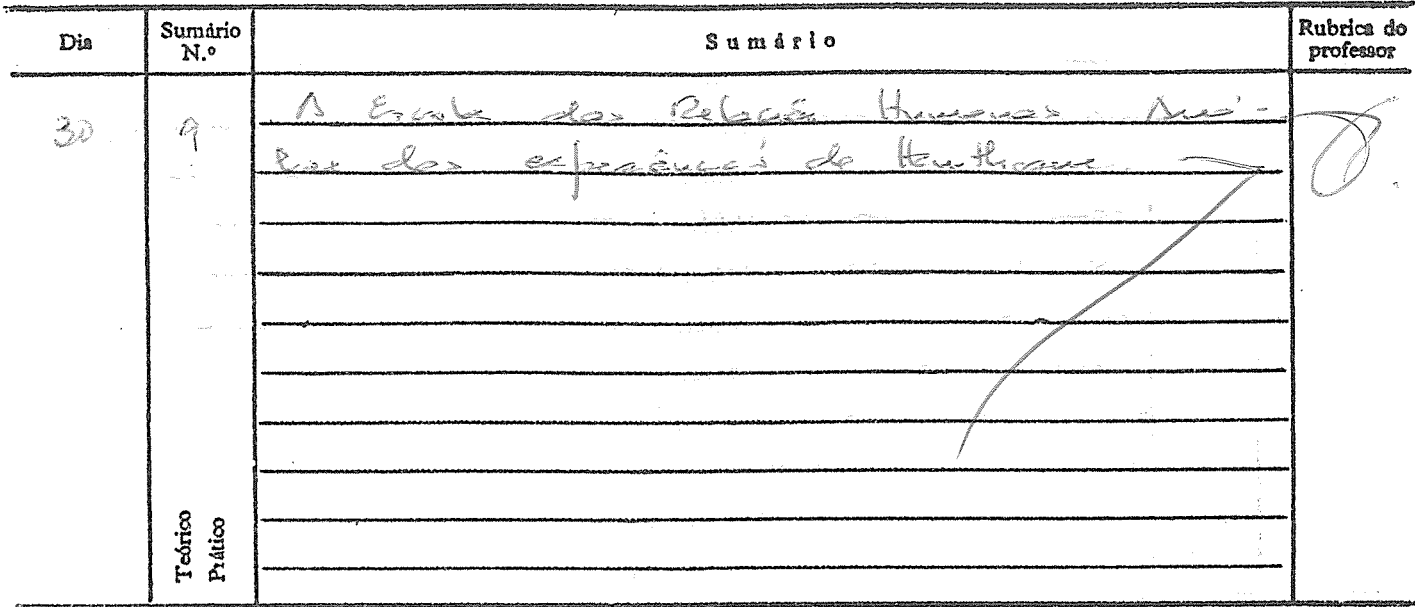 Dia
Sumário N.º
Sumário
Rubrica do professor
30
9
A Escola das Relações Humanas. Aná-
lise das experiências de Hawthorne
Teórico
Prático